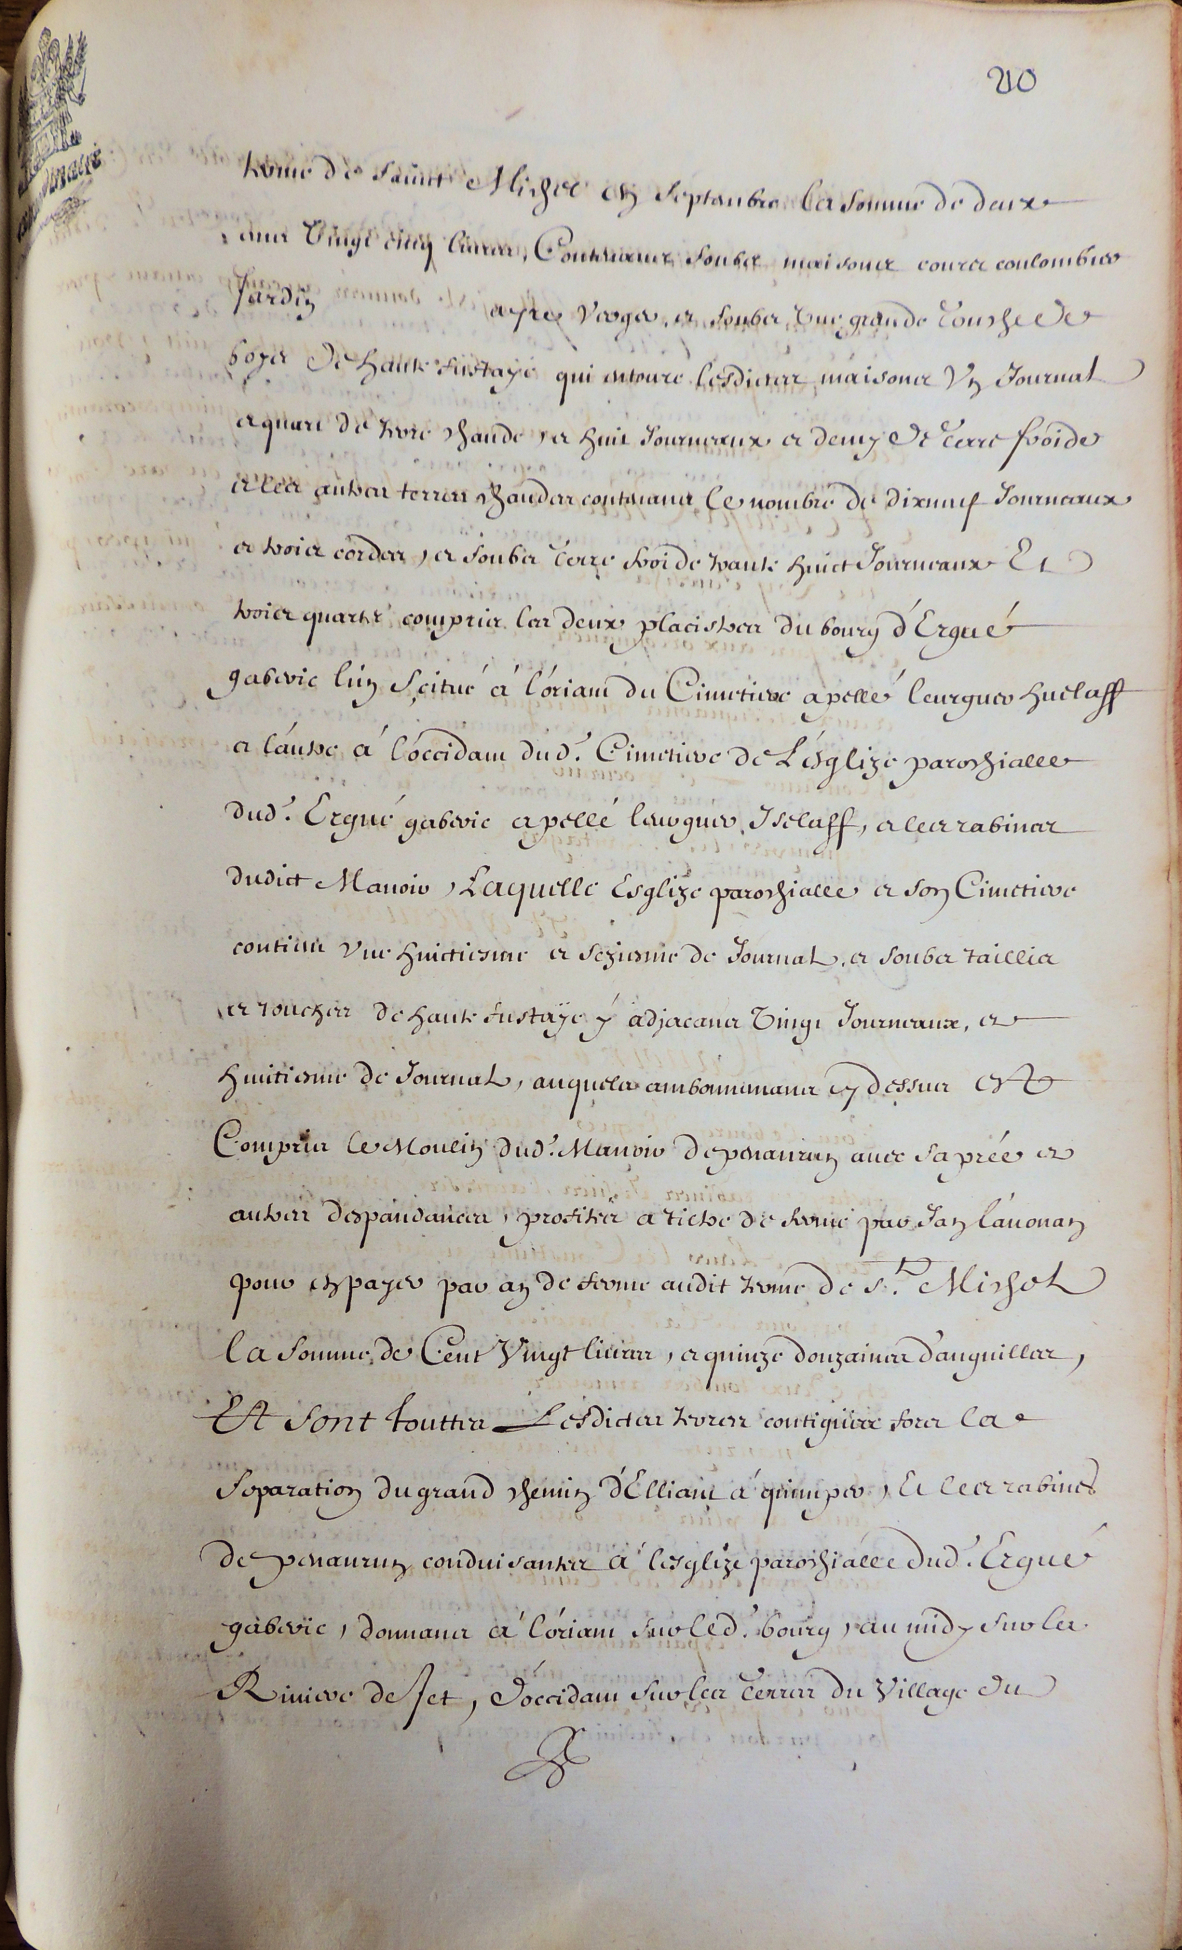 210
terme de Sainct Michel en Septembre la somme de deux
cens Vingt cinq livres, Contenans soubz maisons cours coulombier
Jardin ayre Verger, et soubz Une grande Tousche de
boys de haute fustaye qui entoure lesdictes maisons Un Journal
et quart de terre chaude, et huit Journeaux et demy de terre froide
et les autres terres chaudes contenans le nombre de dixneuf Journeaux
et trois cordes, et soubz terre froide trante huict Journeaux Et
trois quarts compris les deux placistres du bourg d'Ergué
gaberic l'un Scitué à l'oriant du Cimetiere apellé leurguer huelaff
et l'autre à l'occidant dud. Cimetiere de L'esglize parochialle
dud. Ergué gaberic apellé leurguer Iselaff, et les rabines
dudict Manoir, Laquelle Esglize parochialle et son Cimetiere
contient Une huictiesme et seziesme de Journal, et soubz taillis
et touches de haute fustaye y adjacans Vingt Journeaux, et
huitiesme de Journal, auquels embornemans cy dessus est
Compris le Moulin dud. Manoir de penanrun avec sa prée et
autres despandances, profités a tictre de ferme par Jan lavonan
pour en payer par an de ferme audit terme de St. Michel
la somme de Cent Vingt livres, et quinze douzaines d'anguilles,
Et sont touttes Lesdictes terres contiguës fors la
separation du grand chemin d'Elliant à quimper, Et les rabines
de penanrun conduisantes à l'esglize parochialle dud. Ergué
gaberic, donnans à l'oriant sur led. bourg, au midy sur la
Riviere de Jet, d'occidant sur les terres du Village du